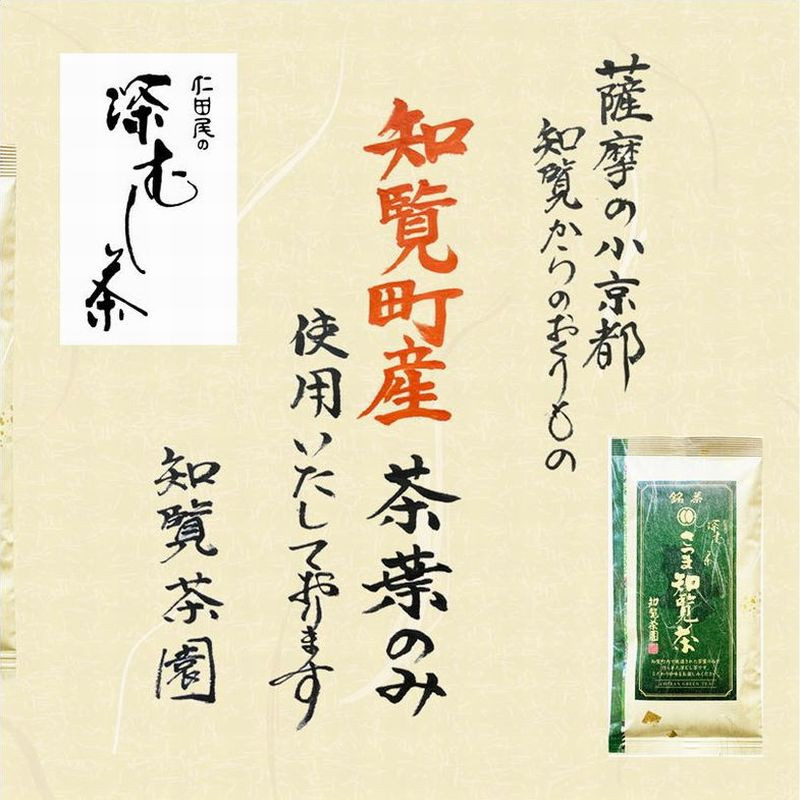 薩摩の小京都
知覧からのおくりもの
知覧町産茶葉のみ
使用いたしております
知覧茶園
仁田尾の
深むし茶
銘茶
深むし茶
さつま知覧茶
知覧茶園